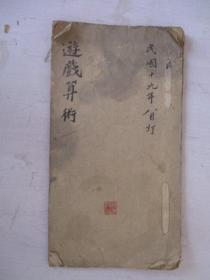 民國十九年八月訂
遊戲算術